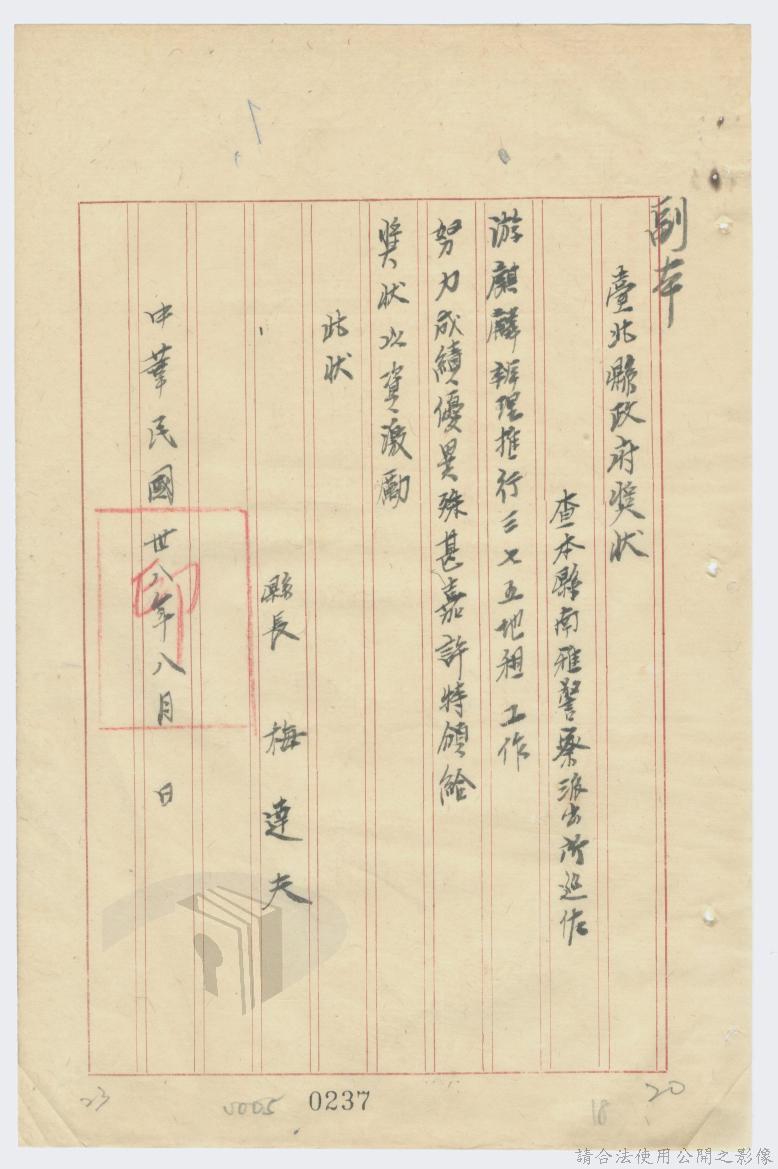 副本
臺北縣政府奬狀
查本縣南雅警察派出所巡佐
游麒麟辦理推行三七五地租工作
努力成績優異殊甚嘉許特頒給
奬狀以資激勵
此狀
縣長 梅達夫
中華民國卅八年八月 日
印
23
0005
0237
18
20
請合法使用公開之影像